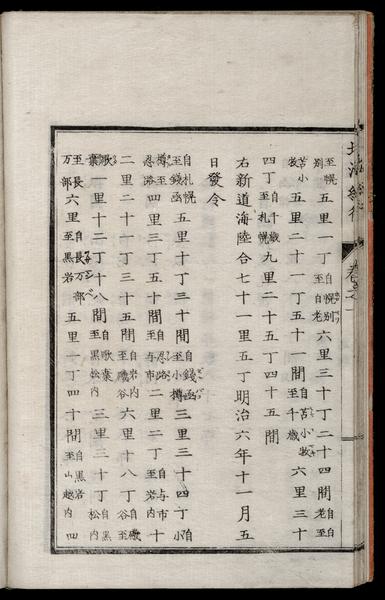 至幌別五里一丁自幌別至白老六里三十丁二十四間自白老至
苫小牧五里二十一丁五十一間自苫小牧至千歳六里三十
四丁自千歳至札幌九里二十五丁四十五間
右新道海陸合七十一里五丁明治六年十一月五
日發令
自札幌至錢函五里十丁三十間自錢函至小樽三里三十四丁自小
樽至忍路四里三丁五十間自忍路至余市二里二丁自余市至岩内十
二里二十一丁三十五間自岩内至磯谷六里十八丁自磯谷至
歌棄一里十二丁十八間自歌棄至黒松内三里三十丁自黒松内
至長万部六里自長万部至黒岩五里一丁四十間自黒岩至山越内四